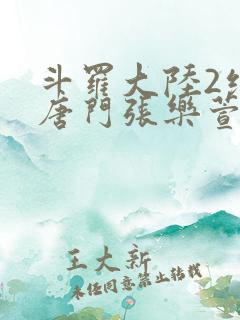 斗羅大陸2
唐門張樂萱
王大新
未經同意禁止轉載